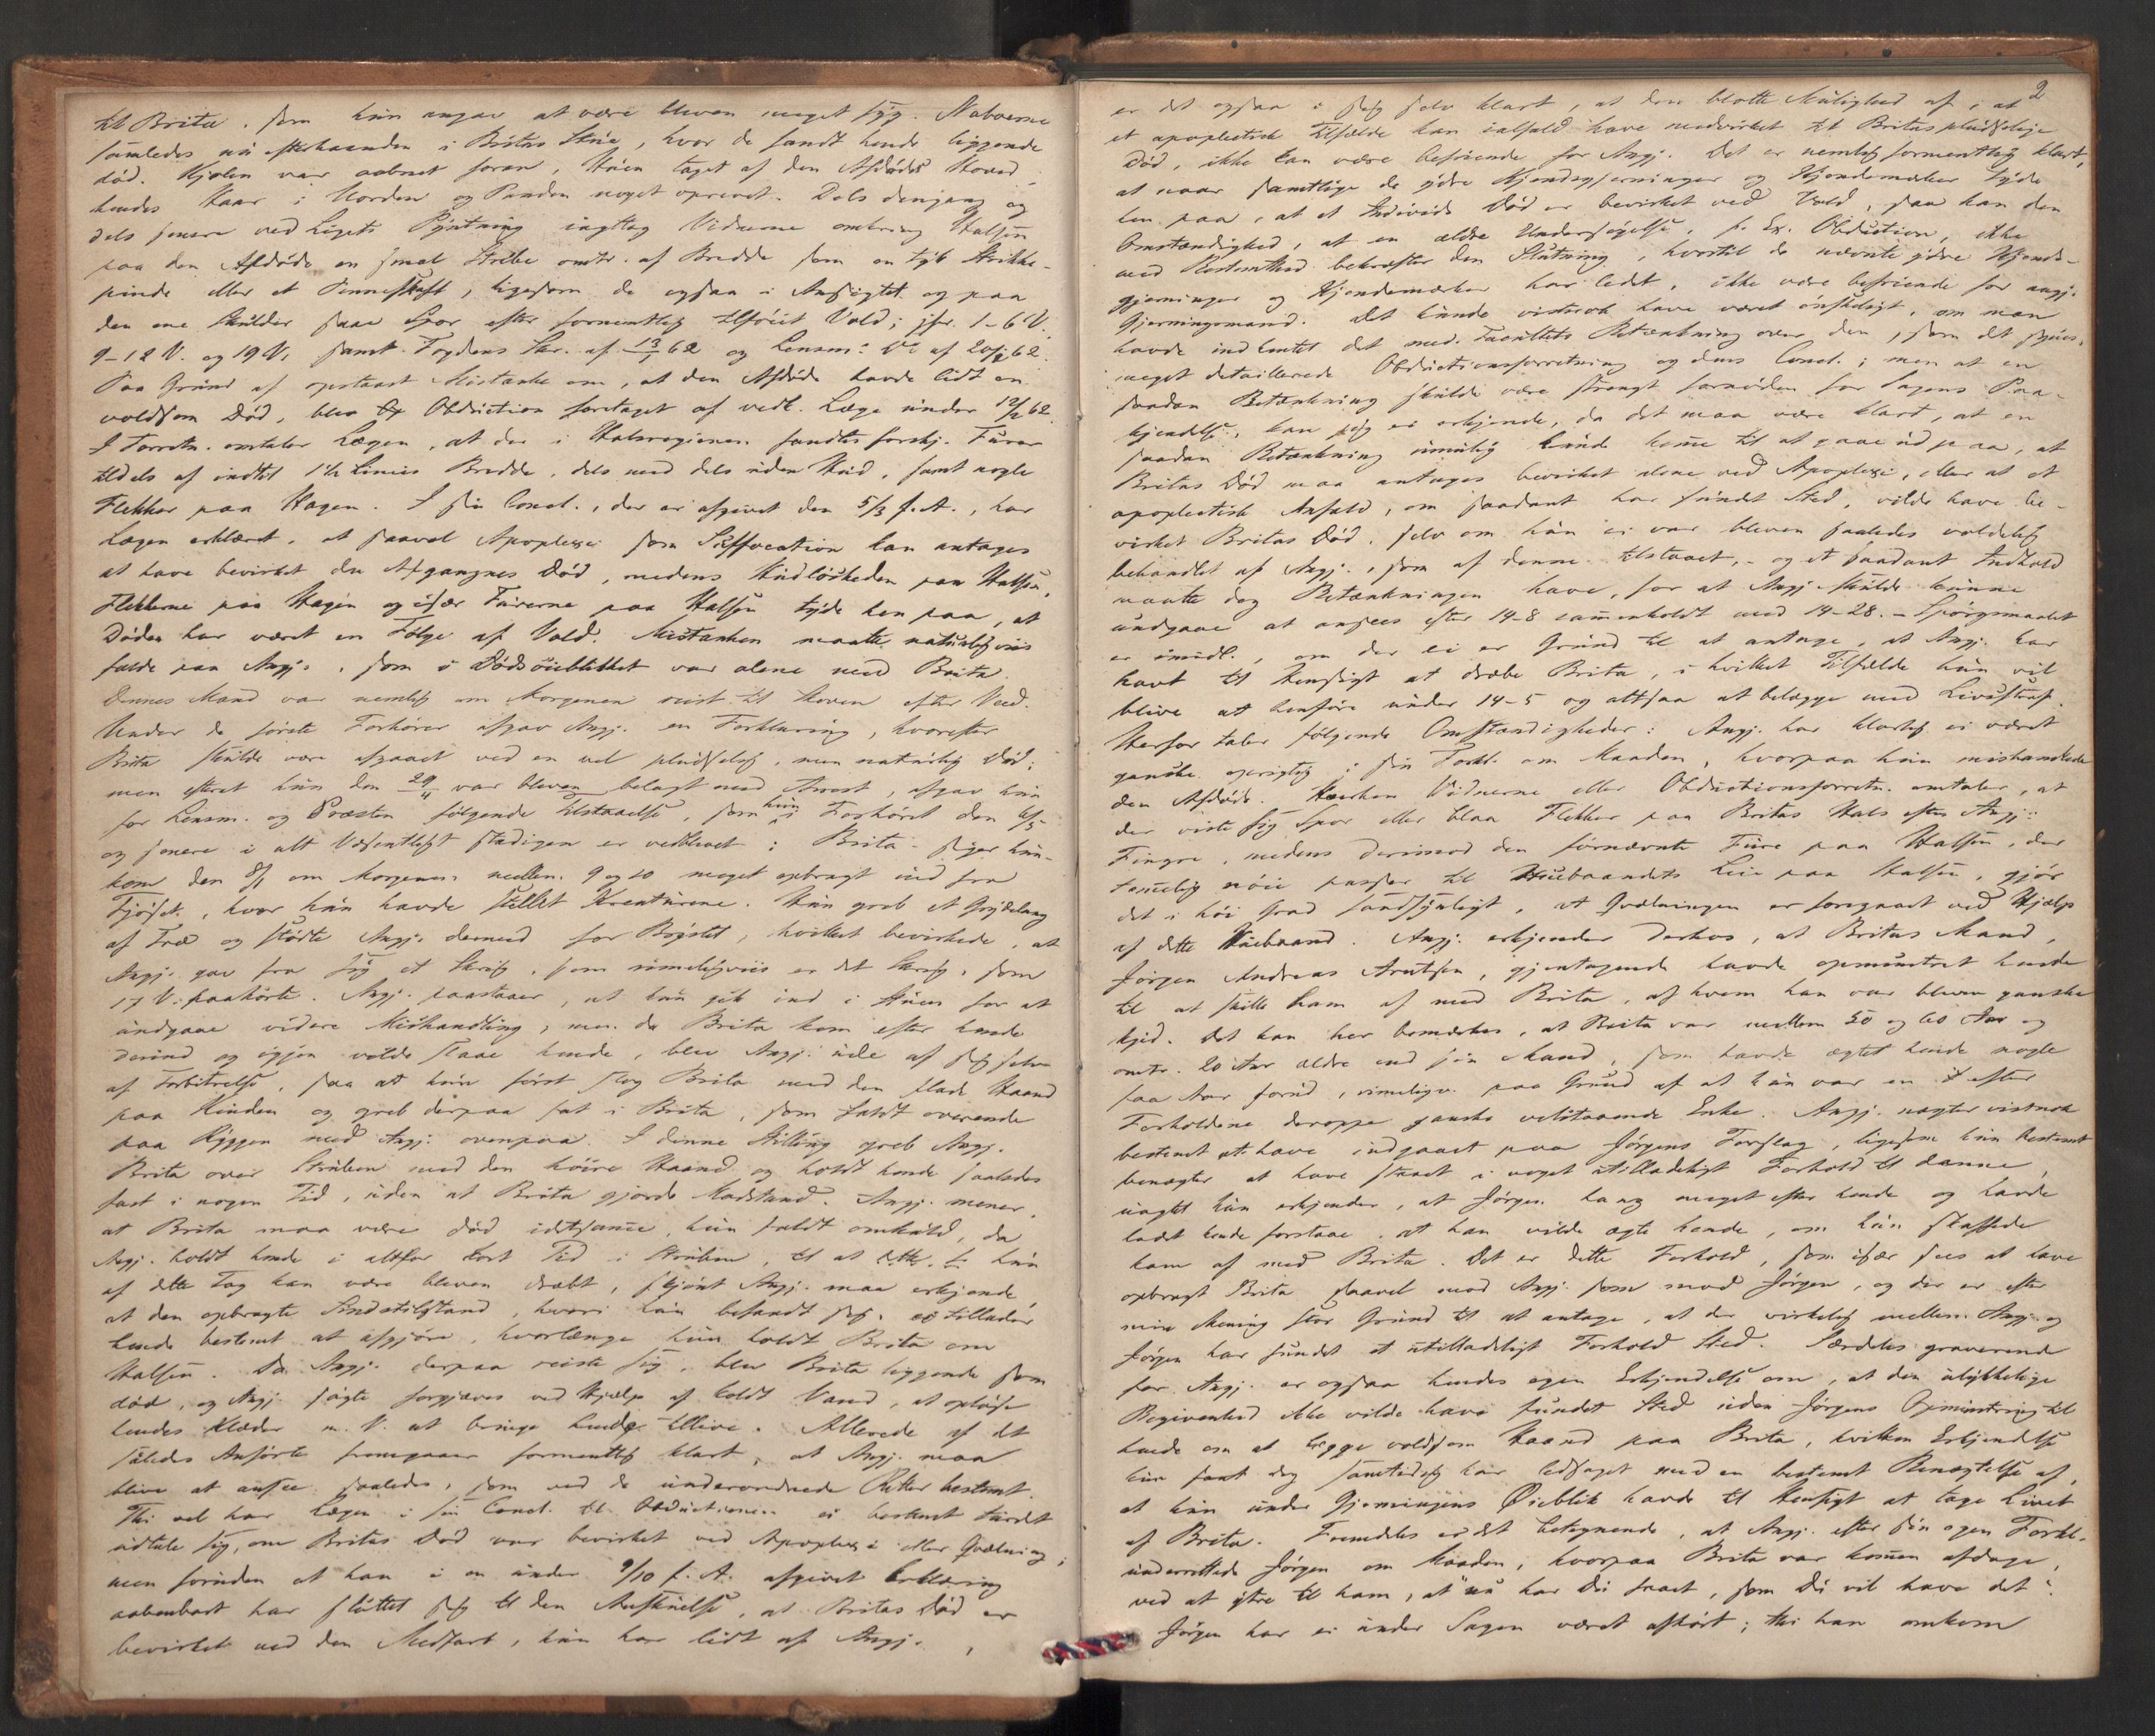 til Brita, som hun angav at være bleven meget syg. Naboerne
samledes nu efterhaanden i Britas Stue, hvor de fandt hende liggende
død. Kjolen var aabnet foran, Huen taget af den Afdødes Hoved,
hendes Haar i Uorden og Panden noget oprevet. Dels dengang og
dels senere ved Ligets Pyntning iagttog Vidnerne omkring Halsen
paa den Afdøde en smal Stribe omtr. af Bredde som en tyk Strikke-
pinde eller et Penneskaft, ligesom de ogsaa i Ansigtet og paa
den ene Skulder saae Spor efter formentlig tilføiet Vold; jfr. 1-6 V.
9-12 V. og 19 V. samt Fogdens Skr. af 13/1 62 og Lensm: Do af 20/1 62.
Paa Grund af opstaaet Mistanke om, at den Afdøde havde lidt en
voldsom Død, blev Obduction foretaget af vedk. Læge under 12/2 62.
I Forretn. omtaler Lægen, at der i Halsregionen fandtes forskj. Furer
tildels af indtil 1½ Linies Bredde, dels med dels uden Hud, samt nogle
Flekker paa Hagen. I sin Concl., der er afgivet den 5/3 f. A., har
Lægen erklæret, at saavel Apoplexi som Suffocation kan antages
at have bevirket den Afgangnes Død, medens Hudløsheden paa Halsen,
Flekkerne paa Hagen og især Furerne paa Halsen tyde hen paa, at
Døden har været en Følge af Vold. Mistanken maatte naturligviis
falde paa Angj., som i Dødsøieblikket var alene med Brita.
Dennes Mand var nemlig om Morgenen reist til Skoven efter Ved.
Under de første Forhører afgav Angj. en Forklaring, hvorefter
Brita skulde være afgaaet ved en vel pludselig, men naturlig Død;
men efterat hun den 29/4 var bleven belagt med Arrest, afgav hun
for Lensm. og Præsten følgende Tilstaaelse, som hun i Forhøret den 6/5
og senere i alt Væsentligt stadigen er vedblevet: Brita - siger hun -
kom den 8/1 om Morgenen mellem 9 og 10 meget opbragt ind fra
Fjøset, hvor hun havde stellet Kreaturene. Hun greb et
af Træ og stødte Angj. dermed for Brystet, hvilket bevirkede, at
Angj. gav fra sig et Skrig, som rimeligviis er det Skrig, som
17 V. paahørte. Angj. paastaaer, at hun gik ind i Stuen for at
undgaae videre Mishandling; men da Brita kom efter hende
derind og igjen vilde slaae hende, blev Angj. ude af sig selv
af Forbitrelse, saa at hun først slog Brita med den flade Haand
paa Kinden og greb derpaa fat i Brita, som faldt overende
paa Ryggen med Angj. ovenpaa. I denne Stilling greb Angj.
Brita over Struben med den høire Haand og holdt hende saaledes
fast i nogen Tid, uden at Brita gjorde Modstand. Angj. mener,
at Brita maa være død idetsamme, hun faldt omkuld, da
Angj. holdt hende i altfor kort Tid i Struben, til at hun
af dette Tag kan være bleven dræbt, skjønt Angj. maa erkjende,
at den opbragte Sindstilstand, hvori hun befandt sig, ei tillader
hende bestemt at afgjøre, hvorlænge hun holdt Brita om
Halsen. Da Angj. derpaa reiste sig, blev Brita liggende som
død, og Angj. søgte forgjæves ved Hjælp af koldt Vand, at opløse
hendes Klæder m. V. at bringe hende tillive. Allerede af det
saaledes Anførte fremgaaer formentlig klart, at Angj. maa
blive at ansee saaledes, som ved de underordnede Retter bestemt.
Thi vel har Lægen i sin Concl. til Obductionen ei bestemt turdet
udtale sig, om Britas Død var bevirket ved Apoplexi eller Qvælning;
men foruden at han i en under 9/10 f. A. afgivet Erklæring
aabenbart har sluttet sig til den Anskuelse, at Britas Død er
bevirket ved den Medfart, hun har lidt af Angj.,
2
er det ogsaa i sig selv klart, at den blotte Mulighed af, at
et apoplectisk Tilfælde kan ialfald have medvirket til Britas pludselige
Død, ikke kan være befriende for Angj. Det er nemlig formentlig klart,
at naar samtlige de ydre Kjendsgjerninger og Kjendemærker tyde
hen paa, at et Individs Død er bevirket ved Vold, saa kan den
Omstændighed, at en ældre Undersøgelse, f. Ex. Obduction, ikke
med Bestemthed bekræfter den Slutning, hvortil de nævnte ydre Kjends-
gjerninger og Kjendemærker har ledet, ikke være befriende for angj.
Gjerningsmand. Det kunde vistnok have været ønskeligt, om man
havde indhentet det med. Facultets Betænkning over den, som det synes,
meget detaillerede Obductionsforretning og dens Concl.; men at en
saadan Betænkning skulde være strengt fornøden for Sagens Paa-
kjendelse, kan jeg ei erkjende, da det maa være klart, at en
saadan Betænkning umulig kunde komme til at gaae ud paa, at
Britas Død maa antages bevirket alene ved Apoplexi, eller at et
apoplectisk Anfald, om saadant har fundet Sted, vilde have be-
virket Britas Død, selv om hun ei var bleven saaledes voldelig
behandlet af Angj., som af denne tilstaaet, - og et saadant Indhold
maatte dog Betænkningen have, for at Angj. skulde kunne
undgaae at ansees efter 14-8 sammenholdt med 14-28. - Spørgsmaalet
er imidl., om der ei er Grund til at antage, at Angj. har
havt til Hensigt at dræbe Brita, i hvilket Tilfælde hun vil
blive at henføre under 14-5 og altsaa at belægge med Livsstraf.
Herfor taler følgende Omstændigheder: Angj. har klarlig ei været
ganske oprigtig i sin Forkl. om Maaden, hvorpaa hun mishandlede
den Afdøde. Hverken Vidnerne eller Obductionsforretn. omtaler, at
der viste sig Spor eller blaa Flekker paa Britas Hals efter Angj:
Fingre, medens derimod den fornævnte Fure paa Halsen, der
temmelig nøie passer til Huebaandets Leie paa Halsen, gjør
det i høi Grad sandsynligt, at Qvælningen er foregaaet ved Hjælp
af dette Huebaand. Angj. erkjender derhos, at Britas Mand,
Jørgen Andreas Arntsen, gjentagende havde opmuntret hende
til at skille ham af med Brita, af hvem han var bleven ganske
kjed. Det kan her bemærkes, at Brita var mellem 50 og 60 Aar og
omtr. 20 Aar ældre end sin Mand, som havde ægtet hende nogle
faa Aar forud, rimeligv. paa Grund af at hun var en efter
Forholdene deroppe ganske velstaaende Enke. Angj. nægter vistnok
bestemt at have indgaaet paa Jørgens Forslag, ligesom hun bestemt
benægter at have staaet i noget utilladeligt Forhold til denne,
uagtet hun erkjender, at Jørgen hang meget efter hende og havde
ladet hende forstaae, at han vilde ægte hende, om hun skaffede
ham af med Brita. Det er dette Forhold, som især sees at have
opbragt Brita saavel mod Angj. som mod Jørgen, og der er efter
min Mening stor Grund til at antage, at der virkelig mellem Angj. og
Jørgen har fundet et utilladeligt Forhold Sted. Særdeles graverende
for Angj. er ogsaa hendes egen Erkjendelse om, at den ulykkelige
Begivenhed ikke vilde have fundet Sted uden Jørgens Opmuntring til
hende om at lægge voldsom Haand paa Brita, hvilken Erkjendelse
hun samt dog samtidig har ledsaget med en bestemt Benægtelse af,
at hun under Gjerningens Øieblik havde til Hensigt at tage Livet
af Brita. Fremdeles er det betegnende, at Angj. efter sin egen Forkl.
underrettede Jørgen om Maaden, hvorpaa Brita var kommen afdage,
ved at ytre til ham, at "nu har Du faaet, som Du vil have det".
Jørgen har ei under Sagen været afhørt; thi han omkom